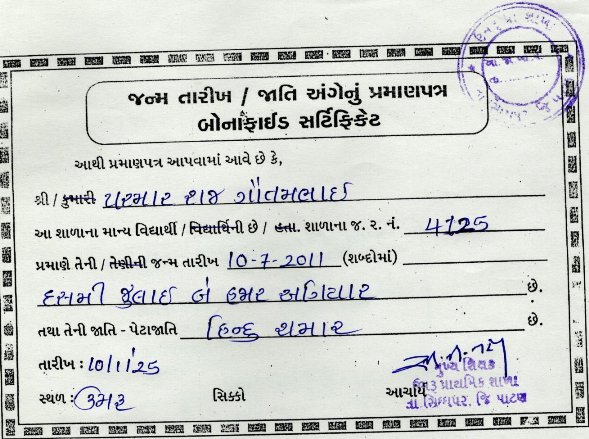 જન્મ તારીખ / જાતિ અંગેનું પ્રમાણપત્ર
બોનાફાઈડ સર્ટિફિકેટ
આથી પ્રમાણપત્ર આપવામાં આવે છે કે,
શ્રી / કુમારી પરમાર રાજ ગૌતમભાઈ
આ શાળાના માન્ય વિદ્યાર્થી / વિદ્યાર્થિની છે / હતા. શાળાના જ. ર. નં. 4725
પ્રમાણે તેની / તેણીની જન્મ તારીખ 10-7-2011 (શબ્દોમાં)
દસમી જુલાઈ બે હજાર અગિયાર છે.
તથા તેની જાતિ - પેટાજાતિ હિન્દુ ચમાર છે.
તારીખ : 10/11/25
મુખ્ય શિક્ષક
સ્થળ : ઉમરૂ સિક્કો આચાર્ય
પ્રાથમિક શાળા
તા સિધ્ધપર, જિ પાટણ